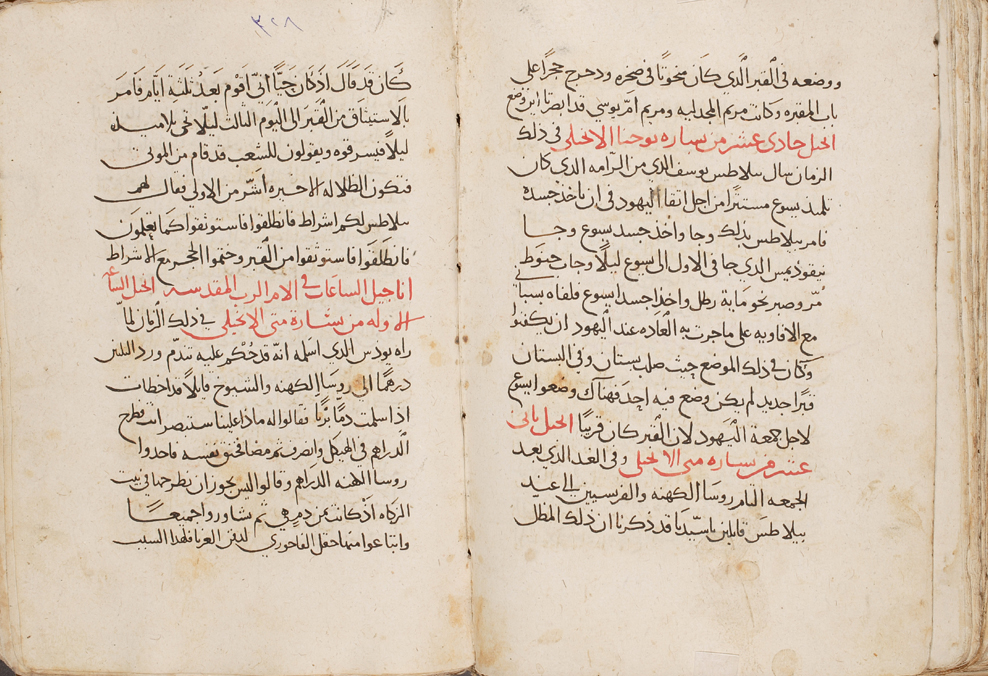 ووضعه في القبر الذي كان منحوتًا في صخره ودحرج حجرًا على
باب المقبره وكانت مريم المجدليه ومريم ام يوسي قد ابصرتا اين وضع
انجيل حادي عشر من بساره يوحنا الانجيلي في ذلك
الزمان سال بيلاطس يوسف الذي من الرامه الذي كان
تلميذ يسوع مستترًا من اجل اتقا اليهود في ان ياخذ جسده
فامر بيلاطس بذلك وجا واخذ جسد يسوع وجا
نيقوذيمس الذي جا في الاول الى يسوع ليلًا وجاب حنوط
مرّ وصبر نحو مايه رطل واخذا جسد ايسوع فلفاه سبانى
مع الافاويه على ما جرت به العاده عند اليهود ان يكفنوا
وكان في ذلك الموضع حيث صلب بستان وفي البستان
قبرًا جديد لم يكن وضع فيه احد فهناك وضعوا يسوع
لاجل جمعة اليهود لان القبر كان قريبًا انجيل ثاني
عشر من بساره متى الانجيلي وفي الغد الذي بعد
الجمعه التام روسا الكهنه والفرسيين الى عند
بيلاطس قايلين ياسيّد يا قد ذكرنا ان ذلك المظل
٣٢٨
كان قد قال اذ كان حيًّا انّي اقوم بعد ثلثه ايام فامر
بالاستيثاق من القبر الى اليوم الثالث ليلًا تجي تلاميذه
ليلًا فيسرقوه ويقولون للشعب قد قام من الموتى
فتكون الظلاله الاخيره اشرّ من الاولى فقال لهم
بيلاطس لكم اشراط فانطلقوا فاستوثقوا كما تعلمون
فانطلقوا فاستوثقوا من القبر وختموا الحجر مع الاشراط
اناجيل الساعات في الام الرب المقدسه انجيل الساعه
الاوله من بشارة متى الانجيلي في ذلك الزمان لمّا
راه يودس الذي اسلمه انّه قد حُكم عليه تندّم ورد الثلثين
درهمًا الى روسا الكهنه والشيوخ قايلًا قد اخطات
اذ اسلمت دمًا بريًا فقالوا له ماذا علينا ستبصر انت فطرح
الدراهم في الهيكل وانصرف ثم مضا فخنق نفسه فاخذوا
روسا الكهنه الدراهم وقالوا ليس يجوز ان نطرحها في بيت
الزكاه اذ كانت ثمن دم هي ثم تشاوروا جميعًا
وابتاعوا منها حقل الفاخوري لدفن الغربا فلهذا السبب